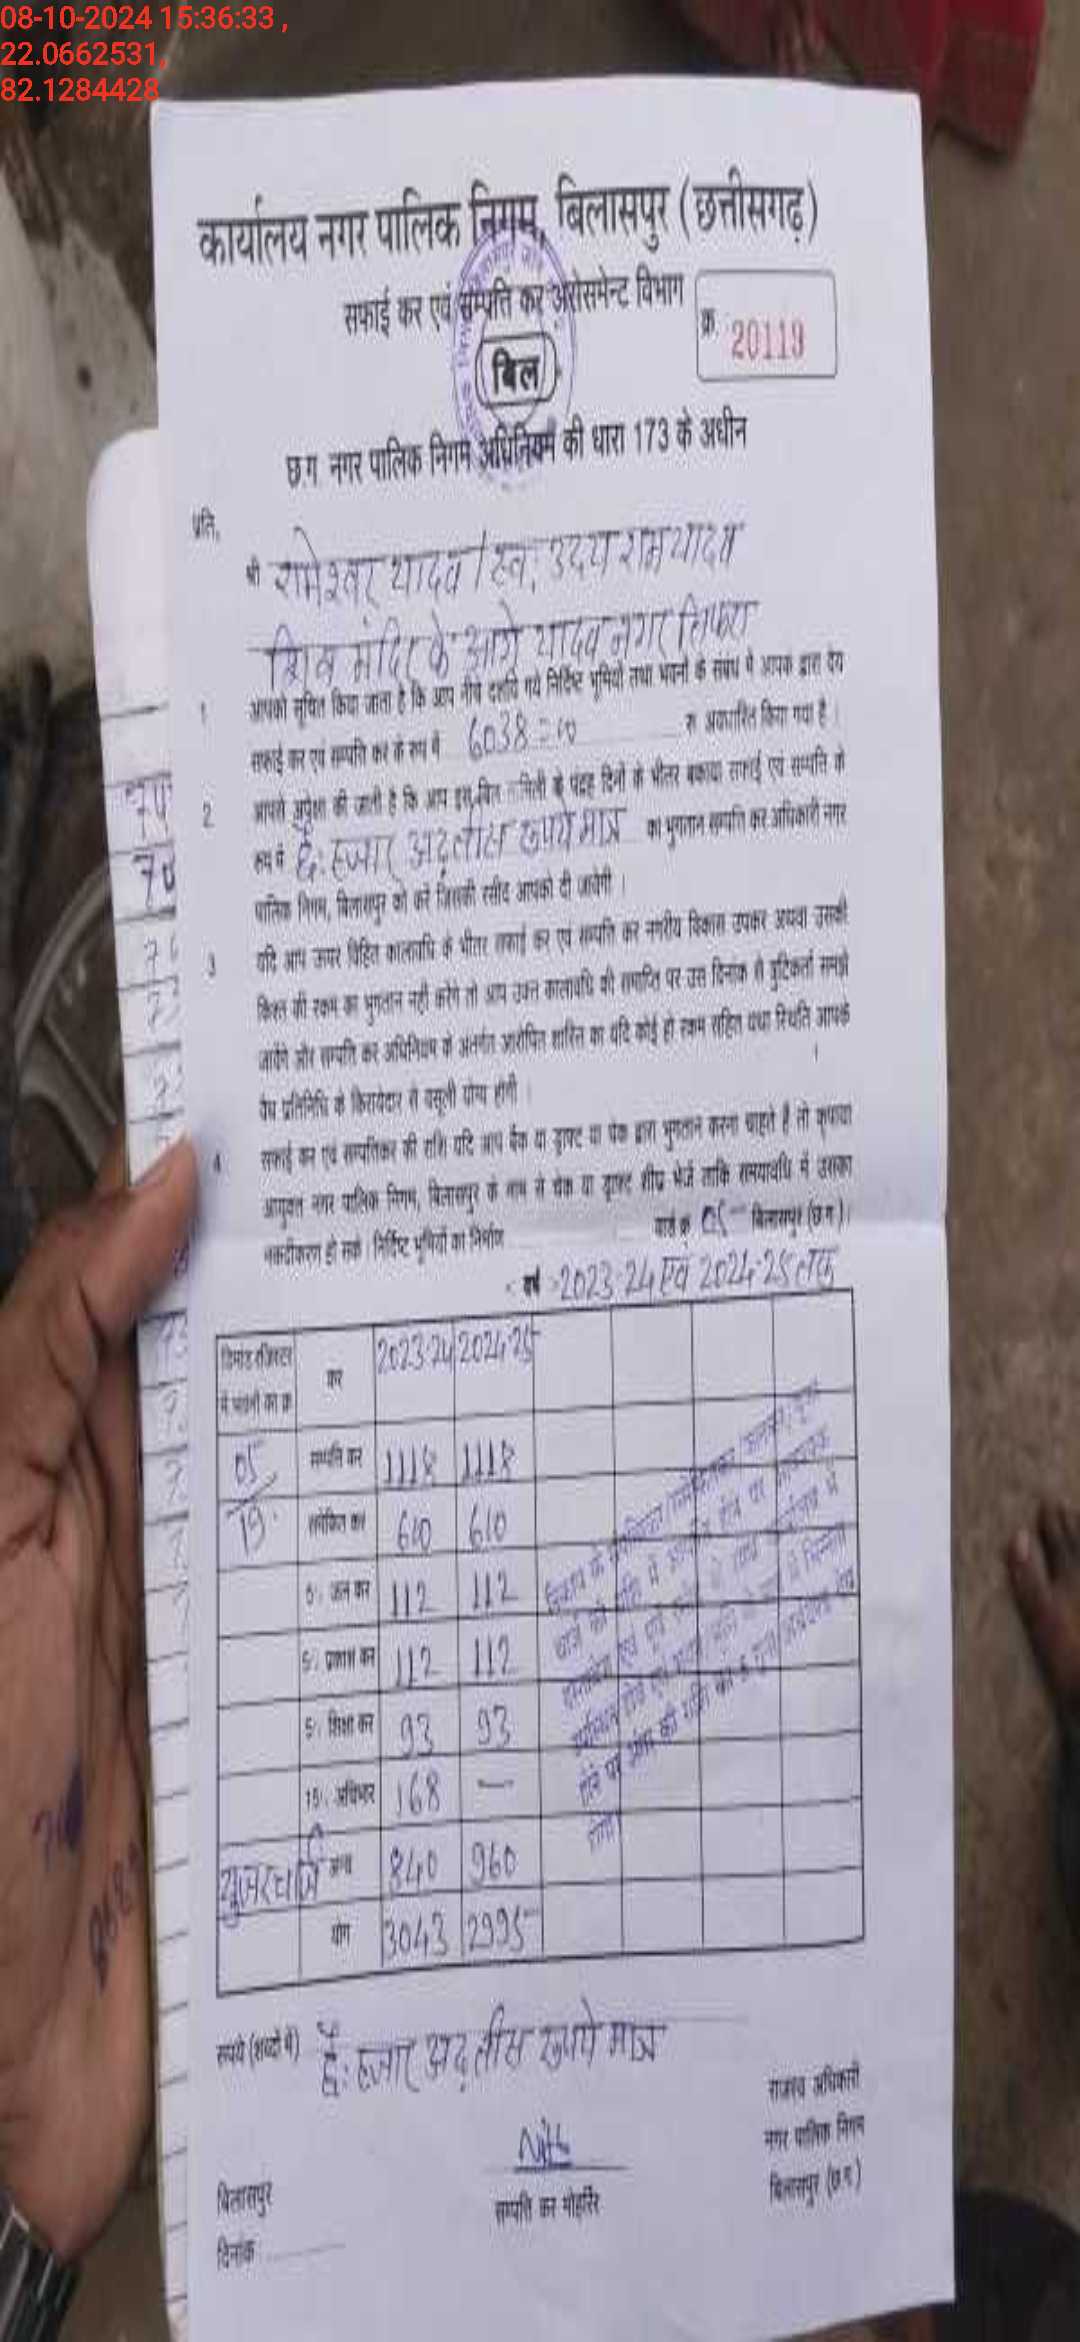 08-10-2024 15:36:33 ,
22.0662531,
82.1284428
कार्यालय नगर पालिक निगम, बिलासपुर (छत्तीसगढ़)
सफाई कर एवं सम्पत्ति कर अरोसमेन्ट विभाग
क्र. 20119
बिल
छ.ग. नगर पालिक निगम अधिनियम की धारा 173 के अधीन
प्रति,
श्री रामेश्वर यादव / स्व. उदय राम यादव
शिव मंदिर के आगे यादव नगर तिफरा
1 आपको सूचित किया जाता है कि आप नीचे दर्शाये गये निर्दिष्ट भूमियों तथा भवनों के संबंध में आपके द्वारा देय
सफाई कर एवं सम्पत्ति कर के रूप में 6038=00 रु अवधारित किया गया है ।
2 आपसे अपेक्षा की जाती है कि आप इस बिल के पंद्रह दिनों के भीतर बकाया सफाई एवं सम्पत्ति के
रूप में छै: हजार अड़तीस रूपये मात्र का भुगतान सम्पत्ति कर अधिकारी नगर
पालिक निगम, बिलासपुर को करें जिसकी रसीद आपको दी जावेगी ।
3 यदि आप ऊपर विहित कालावधि के भीतर सफाई कर एवं सम्पत्ति कर नगरीय विकास उपकर अथवा उसकी
किश्त की रकम का भुगतान नही करेंगे तो आप उक्त कालावधि की समाप्ति पर उस दिनांक से त्रुटिकर्ता समझे
जावेंगे और सम्पत्ति कर अधिनियम के अंतर्गत आरोपित शास्ति का यदि कोई हो रकम सहित यथा स्थिति आपके
वैध प्रतिनिधि के किरायेदार से वसूली योग्य होगी ।
4 सफाई कर एवं सम्पत्तिकर की राशि यदि आप बैंक या ड्राफ्ट या चेक द्वारा भुगतान करना चाहते हैं तो कृपया
आयुक्त नगर पालिक निगम, बिलासपुर के नाम से चेक या ड्राफ्ट शीघ्र भेजें ताकि समयावधि में उसका
नकदीकरण हो सके । निर्दिष्ट भूमियों का निर्माण वार्ड क्र. 05 बिलासपुर (छ.ग.)।
वर्ष 2023-24 एवं 2024-25 तक
डिमांड रजिस्टर में भवनों का क्र. कर 2023-24 2024-25
05 सम्पत्ति कर 1118 1118
19 समेकित कर 610 610
जल कर 112 112
5% प्रकाश कर 112 112
5% शिक्षा कर 93 93
15% अधिभार 168 —
यूजर चार्ज अन्य 840 960
योग 3043 2995
रूपये (शब्दों में) छै: हजार अड़तीस रूपये मात्र
राजस्व अधिकारी
नगर पालिक निगम
बिलासपुर (छ.ग.)
सम्पत्ति कर मोहर्रिर
बिलासपुर
दिनांक